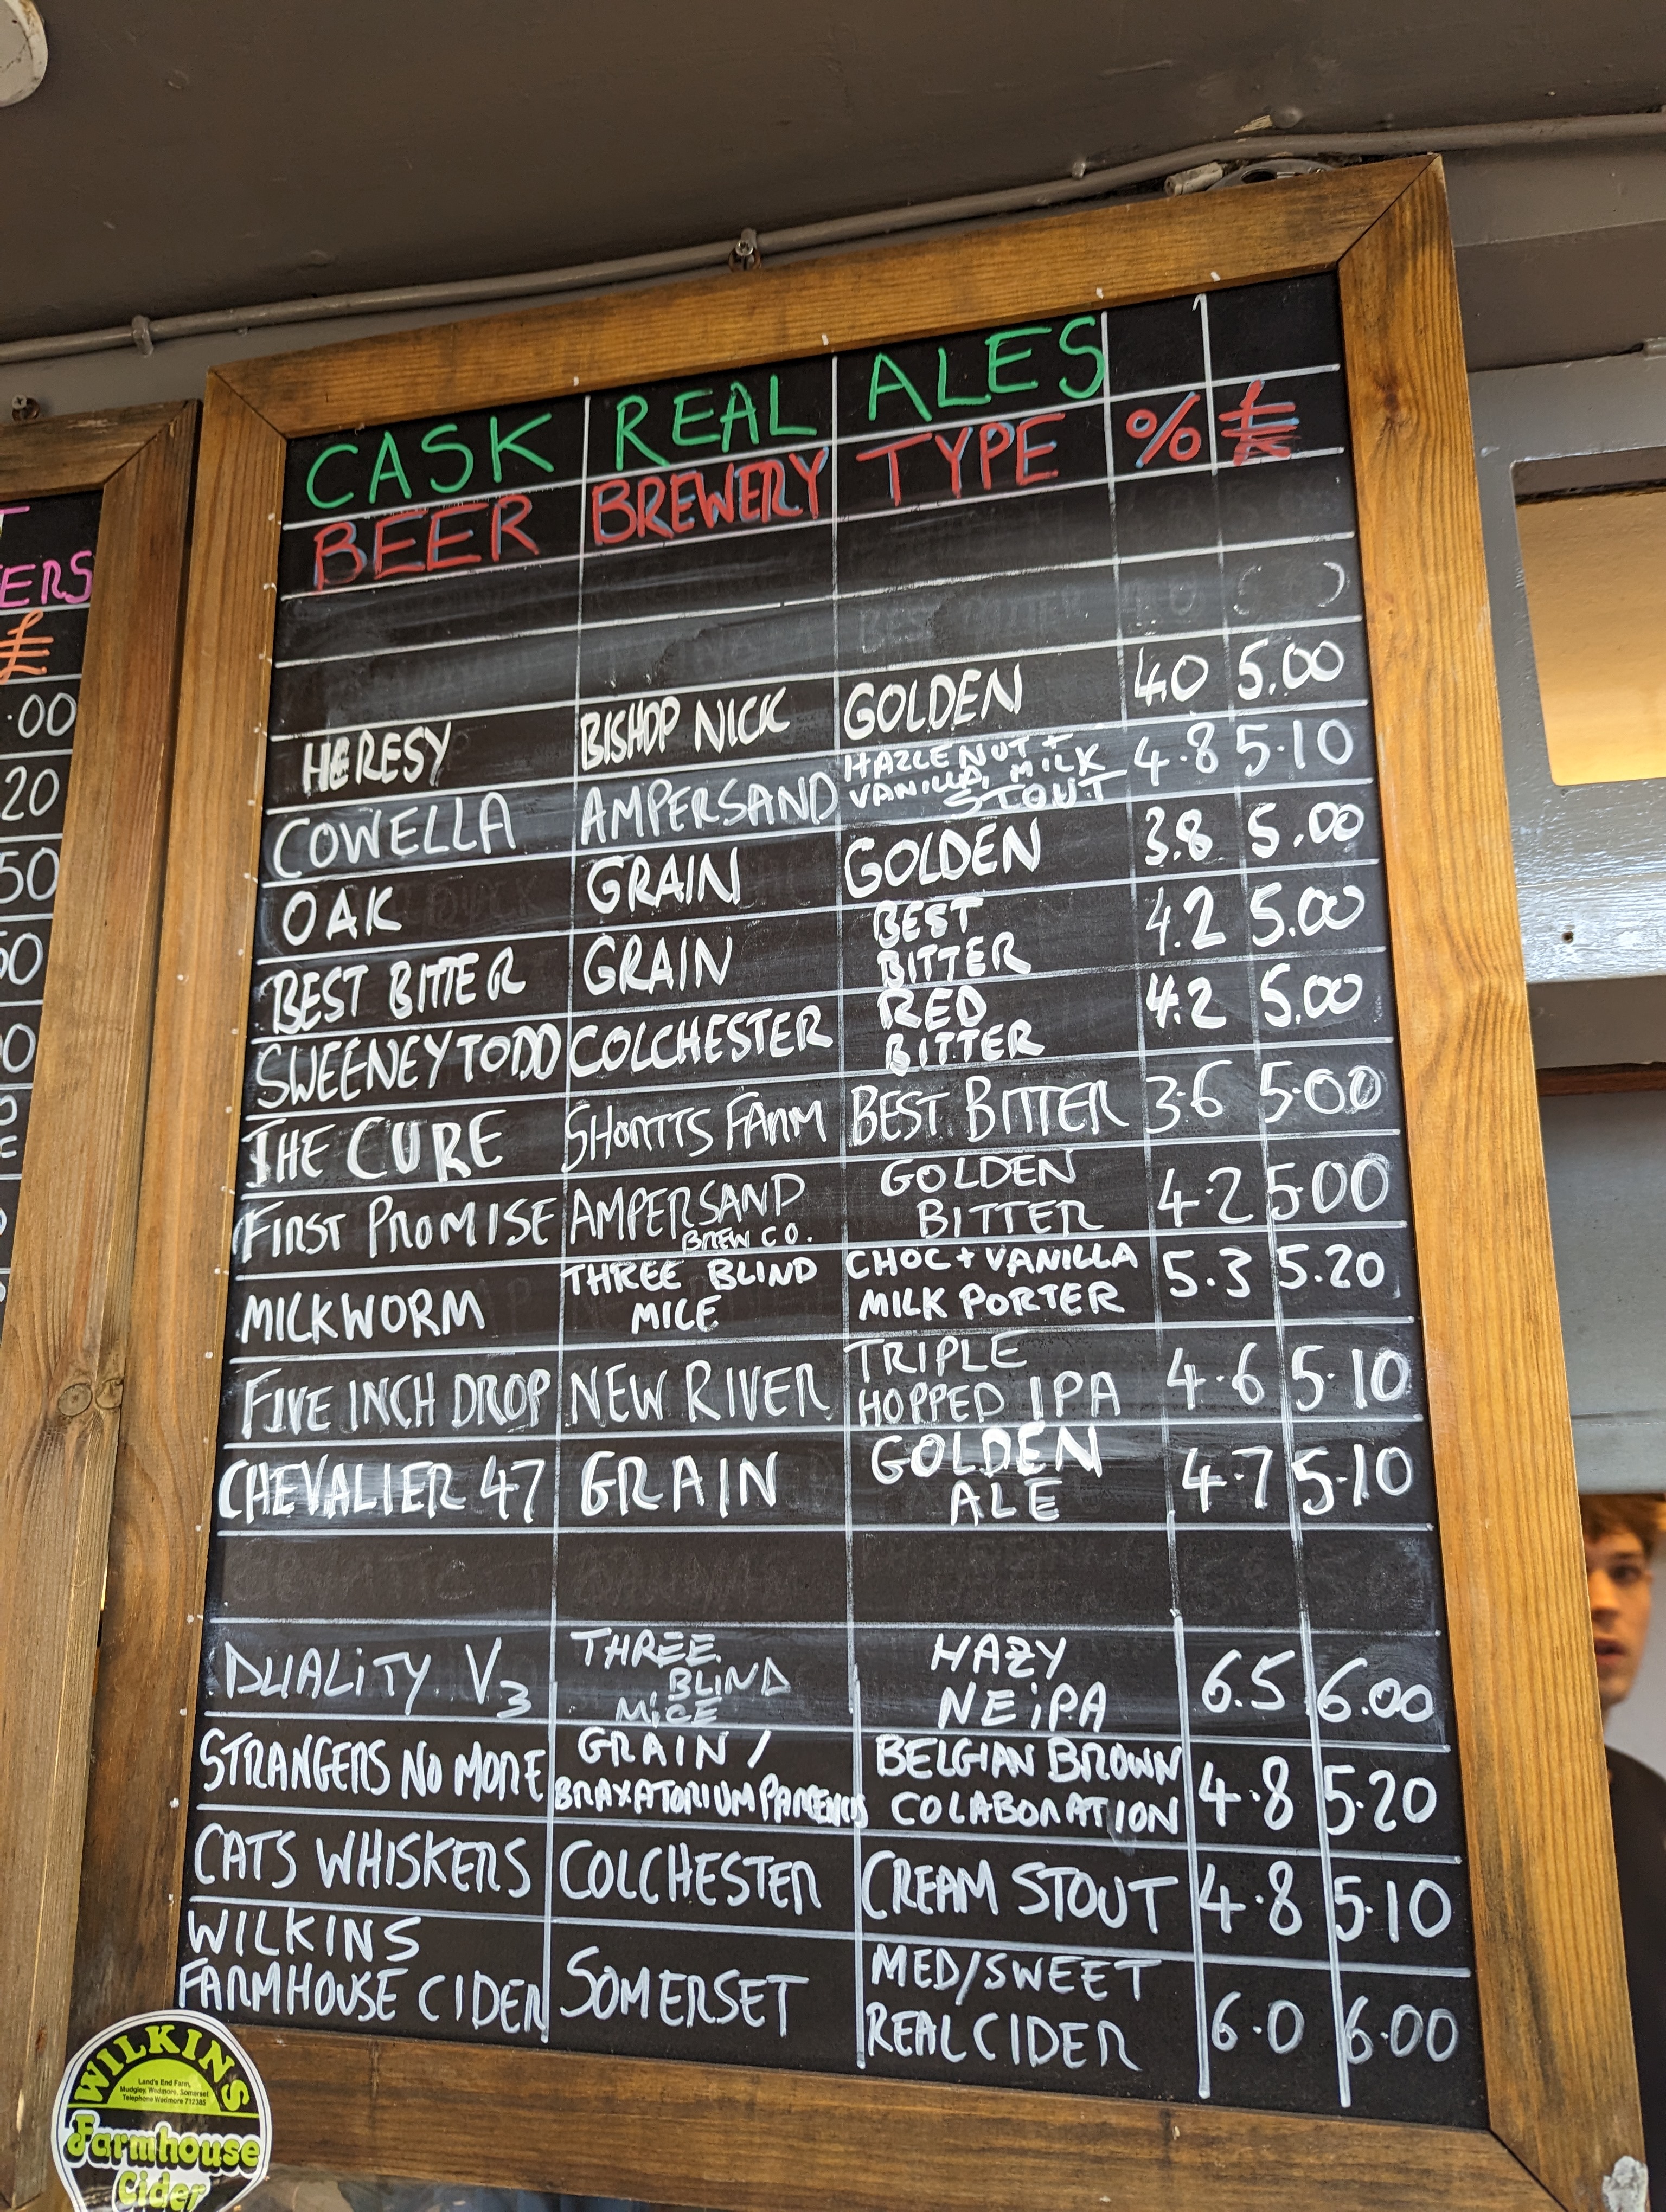 CASK REAL ALES
BEER BREWERY TYPE % £
HERESY BISHOP NICK GOLDEN 4.0 5.00
COWELLA AMPERSAND HAZLENUT + VANILLA, MILK STOUT 4.8 5.10
OAK GRAIN GOLDEN 3.8 5.00
BEST BITTER GRAIN BEST BITTER 4.2 5.00
SWEENEY TODD COLCHESTER RED BITTER 4.2 5.00
THE CURE SHORTTS FARM BEST BITTER 3.6 5.00
FIRST PROMISE AMPERSAND BREW CO. GOLDEN BITTER 4.2 5.00
MILKWORM THREE BLIND MICE CHOC + VANILLA MILK PORTER 5.3 5.20
FIVE INCH DROP NEW RIVER TRIPLE HOPPED IPA 4.6 5.10
CHEVALIER 47 GRAIN GOLDEN ALE 4.7 5.10
DUALITY V3 THREE BLIND MICE HAZY NEIPA 6.5 6.00
STRANGERS NO MORE GRAIN / BRAXATORIUM PARCENSIS BELGIAN BROWN COLABORATION 4.8 5.20
CATS WHISKERS COLCHESTER CREAM STOUT 4.8 5.10
WILKINS FARMHOUSE CIDER SOMERSET MED/SWEET REAL CIDER 6.0 6.00
ERS
£
.00
20
50
50
WILKINS
Land's End Farm,
Mudgley, Wedmore, Somerset
Telephone Wedmore 712385
Farmhouse
Cider